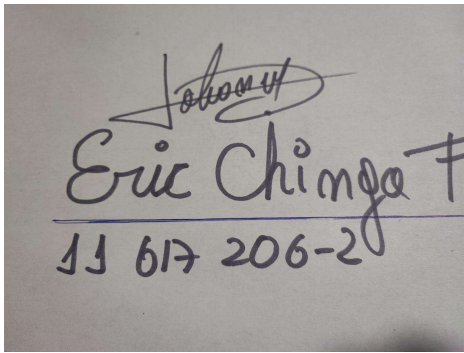 Johonvy
Eric Chinga F
11 617 206-2